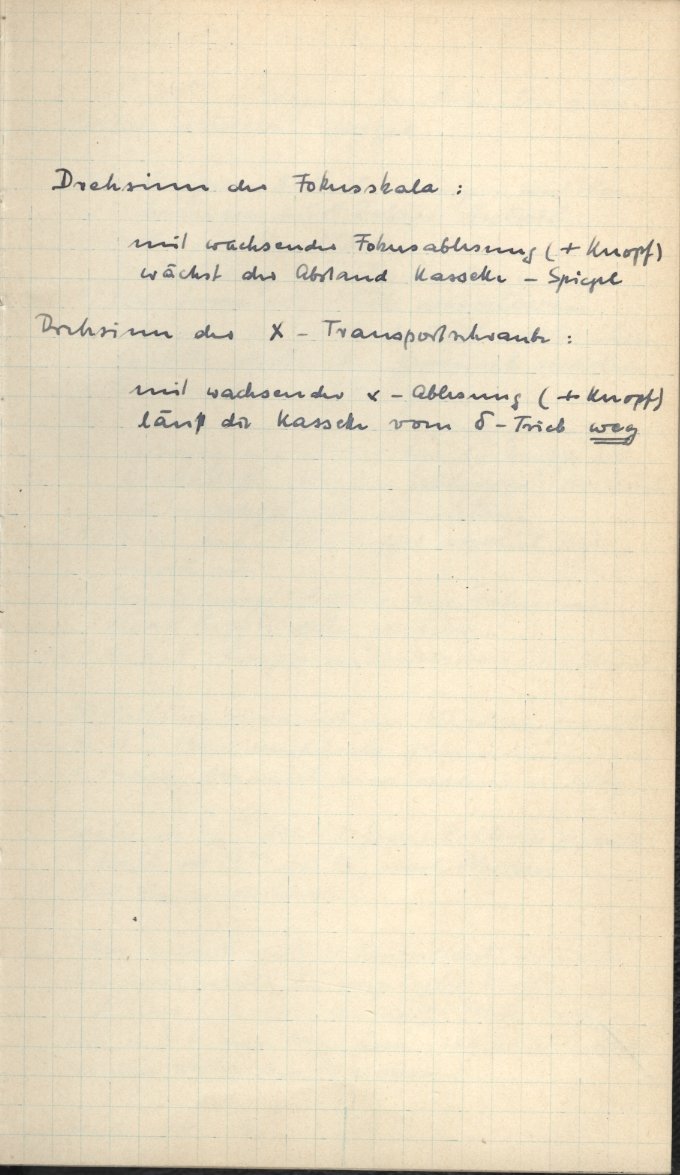 Drehsinn der Fokusskala :
mit wachsender Fokusablesung (+ Knopf)
wächst der Abstand Kassette - Spiegel
Drehsinn der X - Transportschraube :
mit wachsender x - Ablesung (+ Knopf)
läuft die Kassette vom δ - Trieb weg